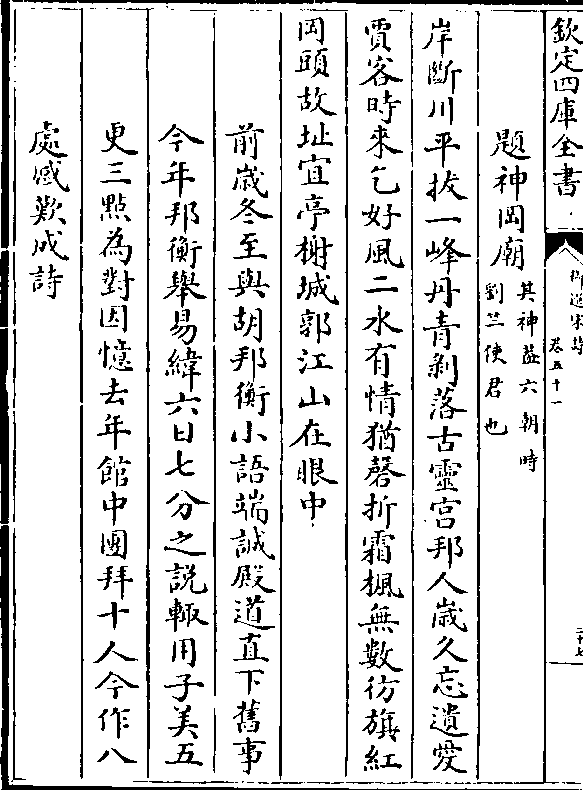 欽定四庫全書
御選宋詩
卷五十一
題神岡廟
其神蓋六朝時
劉竺使君也
岸斷川平拔一峰丹青剝落古靈宮邦人歳久忘遺愛
賈客時來乞好風二水有情猶磬折霜楓無數彷旗紅
岡頭故址宜亭榭城郭江山在眼中
前歳冬至與胡邦衡小語端誠殿道直下舊事
今年邦衡舉易緯六日七分之説輙用子美五
更三點為對因憶去年館中團拜十人今作八
處感歎成詩